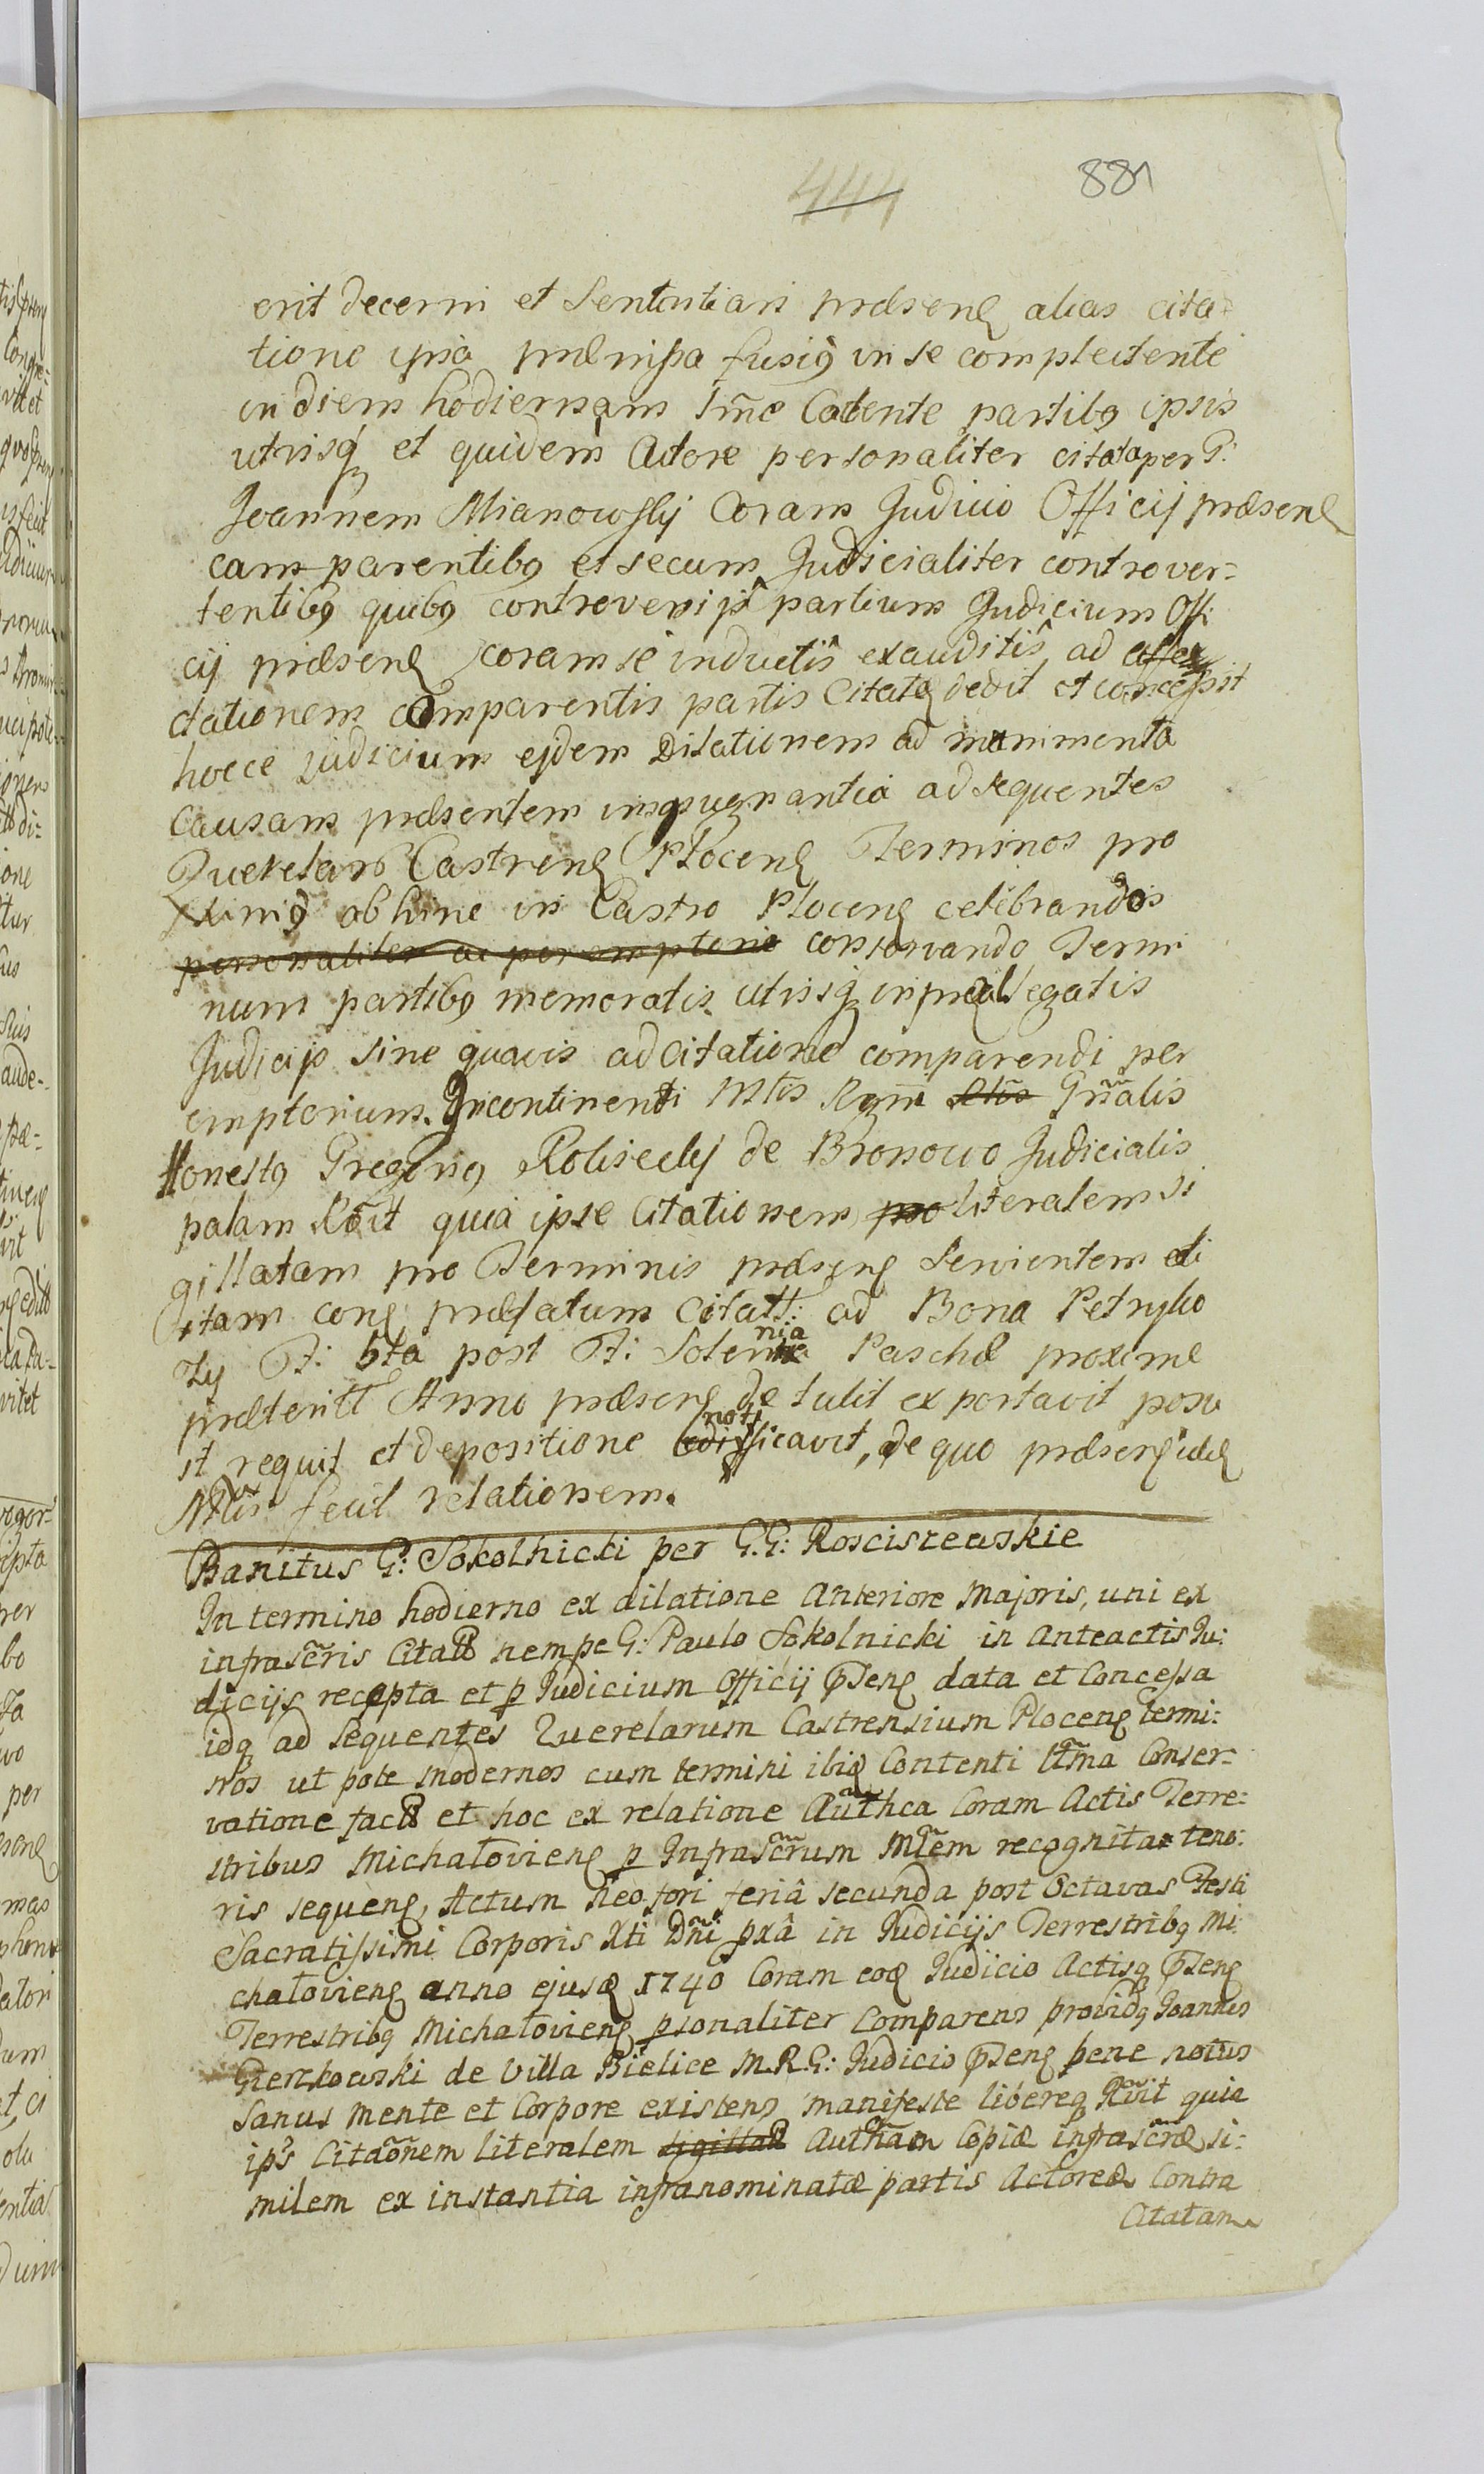 444
881
erit decerni et Sententiari præsenę alias cita-
tione ipsa præmissa fusiq in se complectente
in diem hodiernam lrm̃e Cadente partibq ipsis
utrisq et quidem Actore personaliter citato per G:
Joannem Mianowskij Coram Judicio Officij præsenę
comparentibq et secum Judicialiter controver=
tentibq quibq controversijs partium Judicium Offi
cij præsenę coram se inductis exauditis ad affe
ctationem comparentis partis Citatę dedit et concessit
hocce judicium ejdem Dilationem ad munimenta
Causam præsentem impugnantia ad sequentes
Querelarũ Castrenę Plocenę Terminos pro
ximiq abhinc in Castro Plocenę celebrandos
personaliter ac peremptorie conservando Termi
num partibq memoratis utrisq in præallegatis
Judicijs sine quavis adcitatione comparendi per
emptorium. Incontinenti Mtis Rgm̃ Gñalis
Honestq Gregoriq de Bronowo Judicialis
palam Rc̃it quia ipse Citationem pro literalem si
gillatam pro Terminis præsenę Servientem edi
itam conę præfatum Citatt: ad Bona Petryko
zy F: 6ta post F: Solennia Paschæ proxime
præteritt Anno præsenę detulit exportavit posu
it requit et depositione notificavit, de quo præsenę idę
Mtlis fecit relationem.
Banitus G: Sokolnicki per G.G: Rosciszewskie
In termino hodierno ex dilatione Anteriore Majoris, uni ex
infrascr̃is Citatt nempe G: Paulo Sokolnicki in Anteactis Ju:
dicijs recepta et p Judicium Officij p̃senę data et Concessa
idq ad Sequentes Querelarum Castrensium Plocenę Termi:
nos ut pote modernos cum termini ibię Contenti lĩma Conser=
vatione factt et hoc ex relatione Auth̃ca Coram Actis Terre=
stribus Michałovienę p Infrascr̃um Ml̃em recognita teno:
ris sequenę, Actum Neofori feriâ secunda post Octavas Festi
Sacratissimi Corporis Xti Dñi pxâ in Judicijs Terrestribq Mi
chałovienę anno ejusę 1740 Coram eoę Judicio Actisq p̃senę
Terrestribq Michałovienę psonaliter Comparens providq Joannes
de Villa Bielice M.R.G: Judicio p̃senę bene notus
Sanus mente et Corpore existens manifeste libereq Rc̃vit quia
ips̃ Citaõnem literalem sigillatt Auth̃am Copiæ infrascr̃æ si:
milem ex instantia infranominatæ partis Actoreæ Contra
Citatam